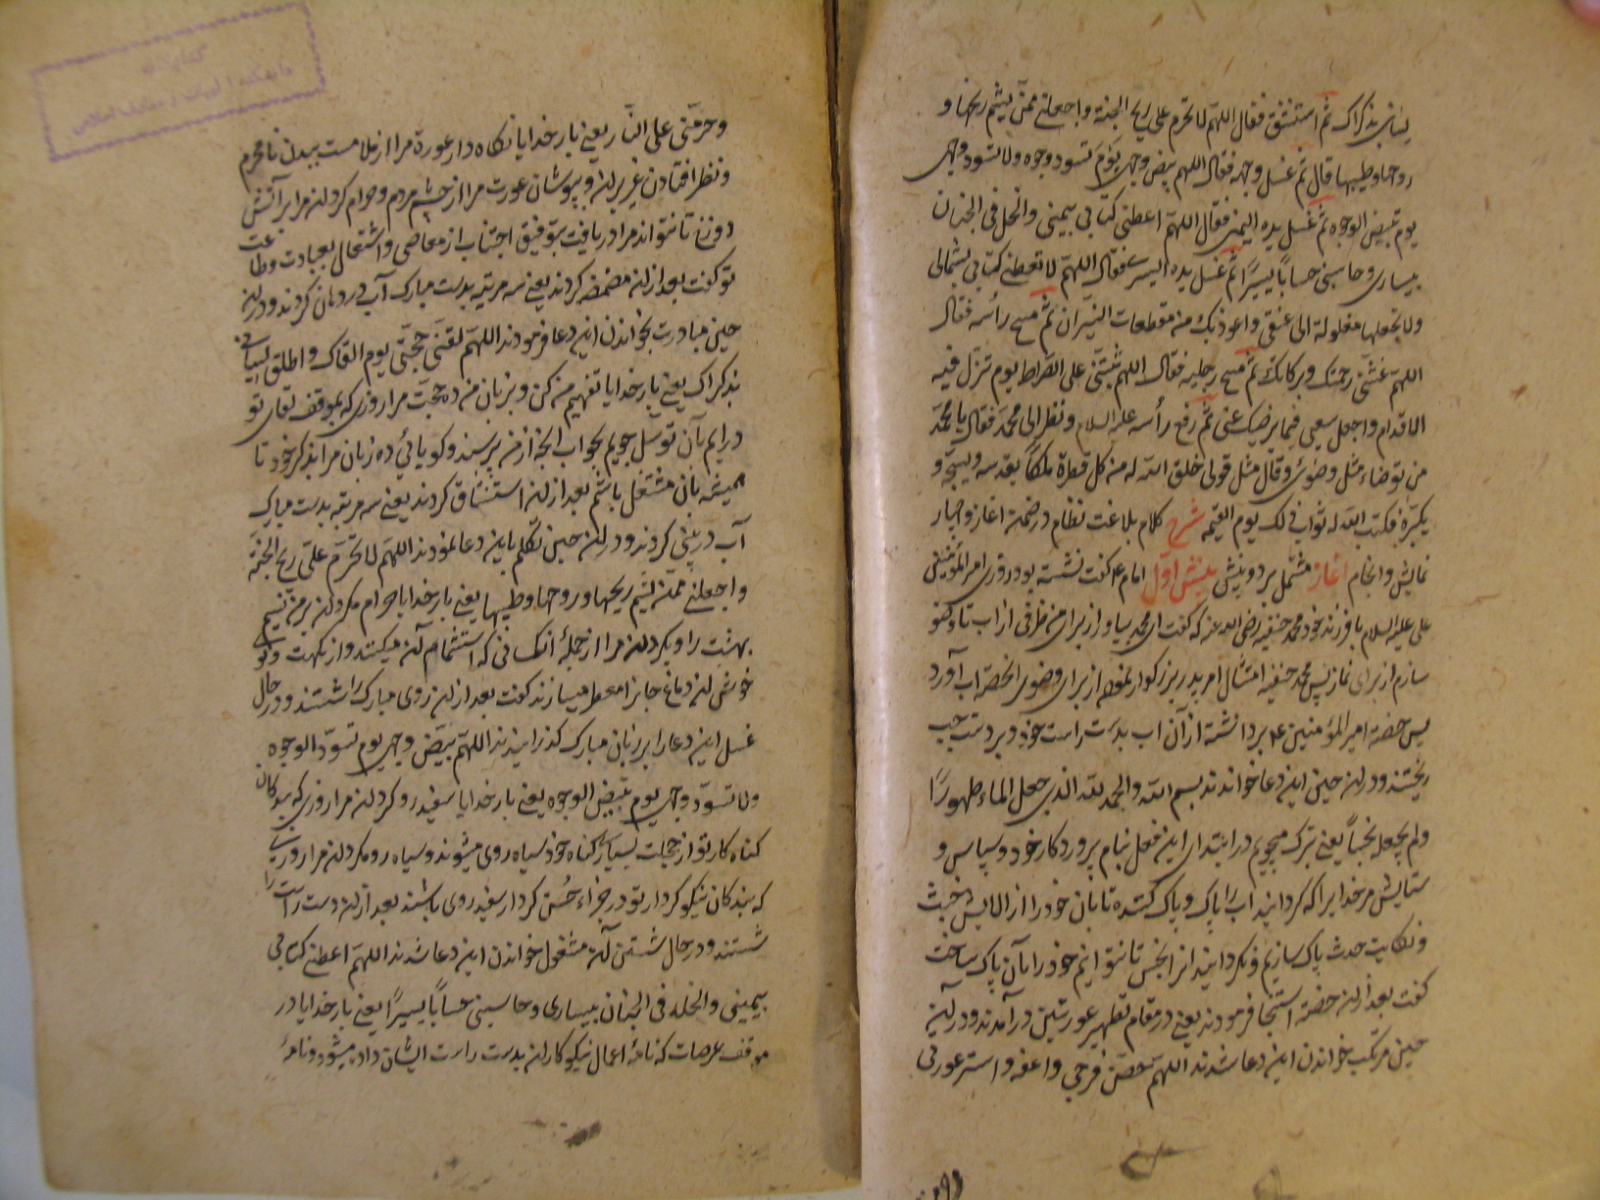 لسانی بذکراک ثم استنشق فقال اللهم لا تحرم علی ریح الجنة و اجعلنی ممن یشم ریحها و
روحها و طیبها قال ثم غسل وجهه فقال اللهم بیض وجهی یوم تسود وجوه ولا تسود وجهی
یوم تبیض الوجوه ثم غسل یده الیمنی فقال اللهم اعطنی کتابی بیمینی والخلد فی الجنان
بیساری و حاسبنی حسابا یسیرا ثم غسل یده الیسری فقال اللهم لا تعطنی کتابی بشمالی
ولا تجعلها مغلولة الی عنقی واعوذ بک من مقطعات النیران ثم مسح رأسه فقال
اللهم غشنی رحمتک و برکاتک ثم مسح رجلیه فقال اللهم ثبتنی علی الصراط یوم تزل فیه
الاقدام واجعل سعیی فیما یرضیک عنی ثم رفع رأسه علیه السلام و نظر الی محمد فقال یا محمد
من توضاء مثل وضوئی و قال مثل قولی خلق الله له من کل قطرة ملکا یقدسه و یسبحه و
یکبره فیکتب الله له ثواب ذلک یوم القیمه شرح کلام بلاغت نظام در ضمن آغاز و چهار
نمایش و انجام آغاز مشتمل بر دو بینش بینش اول امام ع گفت نشسته بود روزی امیر المؤمنین
علی علیه السلام با فرزند خود محمد حنفیه رضی الله عنه که گفت ای محمد بیاور از برای من ظرفی از آب تا وضو
سازم از برای نماز پس محمد حنفیه امتثال امر پدر بزرگوار نموده از برای وضوی آنحضرت آب آورد
پس حضرت امیر المؤمنین ع برداشته از آن آب بدست راست خود و بر دست چپ
ریختند و در این حین این دعا خواندند بسم الله والحمد لله الذی جعل الماء طهورا
ولم یجعله نجسا یعنی تبرک میجویم در ابتدای این فعل بنام پروردگار خود و سپاس و
ستایش مر خدایرا که گردانید آب را پاک و پاک کننده تا بآن خود را از آلایش خبث
و نکایت حدث پاک سازیم و نگردانید آنرا نجس تا نتوانیم خود را بآن پاک ساخت
گفت بعد از این حضرت استنجا فرمودند یعنی در مقام تطهیر عورتین در آمدند و در این
حین مرتکب خواندن این دعا شدند اللهم حصن فرجی و اعفه و استر عورتی
و حرمنی علی النار یعنی بار خدایا نگاه دار عورة مرا از علامت بدیدن نامحرم
و نظر افتادن غیر بر آن و بپوشان عورت مرا از چشم مردم و حرام گردان مرا بر آتش
دوزخ تا نتواند مرا دریافت بتوفیق اجتناب از معاصی و اشتغال بعبادت و طاعت
تو گفت بعد از این مضمضه کردند یعنی سه مرتبه بدست مبارک آب در دهان کردند و در این
حین مبادرت بخواندن این دعا فرمودند اللهم لقنی حجتی یوم القاک و اطلق لسانی
بذکراک یعنی بار خدایا تفهیم من کن و بر زبان من ده حجت مرا روزی که بموقف لقای تو
درآیم بآن توسل جویم بجواب آنچه از من پرسند و گویائی ده زبان مرا بذکر خود تا
همیشه بآن مشتغل باشم بعد از این استنشاق کردند یعنی سه مرتبه بدست مبارک
آب در بینی کردند و در این حین تکلم باین دعا نمودند اللهم لا تحرم علی ریح الجنة
و اجعلنی ممن یشم ریحها و روحها و طیبها یعنی بار خدایا حرام مگردان بر من نسیم
بهشت را و بگردان مرا از جمله آنکسانی که استشمام آن میکنند و از نکهت و بوی
خوش آن دماغ جانرا معطر میسازند گفت بعد از این روی مبارک را شستند و در حال
غسل این دعا را بر زبان مبارک گذرانیدند اللهم بیض وجهی یوم تسود الوجوه
ولا تسود وجهی یوم تبیض الوجوه یعنی بار خدایا سفید رو گردان مرا روزی که بندگان
گناه کار تو از خجلت بسیاری گناه خود سیاه روی میشوند و سیاه رو مگردان مرا روزی
که بندگان نیکو کردار تو در جزاء حسن کردار سفید روی باشند بعد از این دست راست را
شستند و در حال شستن آن مشغول خواندن این دعا شدند اللهم اعطنی کتابی
بیمینی والخلد فی الجنان بیساری و حاسبنی حسابا یسیرا یعنی بار خدایا در
موقف عرصات که نامۀ اعمال نیکو کاران بدست راست ایشان داده میشود نامۀ
کتابخانه
دانشکده الهیات و معارف اسلامی